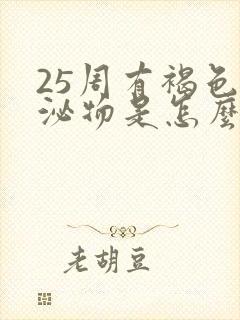 25周有褐色
泌物是怎麽
老胡豆